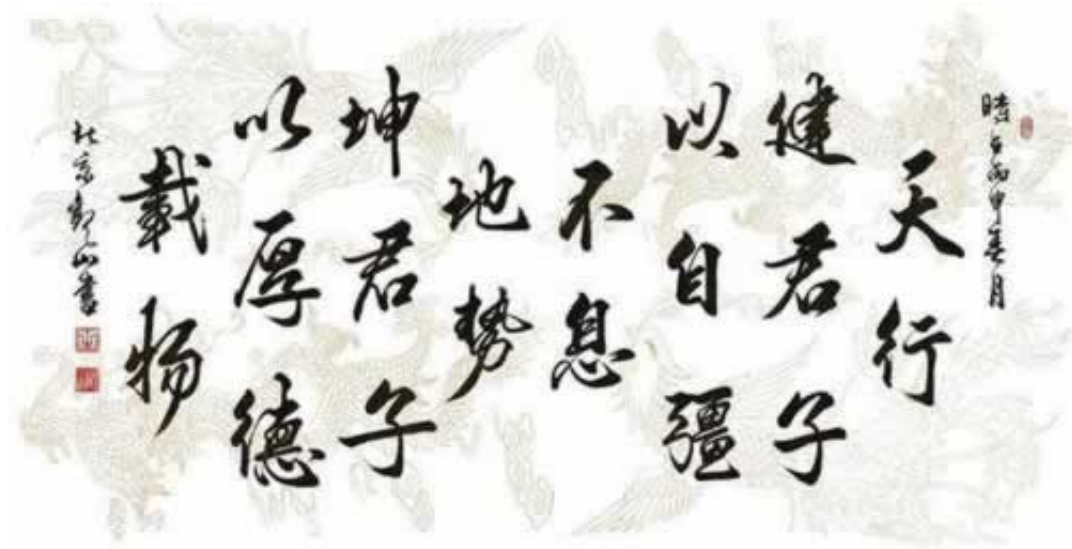 時在丙申春月
天行
健君子
以自彊
不息
地势
坤君子
以厚德
載物
山書